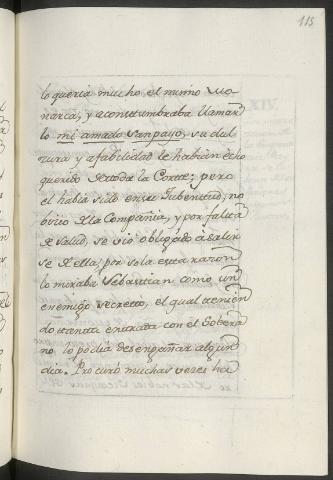 115
lo queria mucho el mismo Mo-
narca, y acostumbraba llamar
lo mi amado Sanpayo, su dul
zura y afabilidad le habian echo
querido de toda la Corte; pero
el habia sido en su Jubentud, no
bicio de la Compañia, y por falta
de salud, se vió obligado á salir
se de ella; por sola esta razon
lo miraba Sebastian como un
enemigo secreto, el qual tenien
do tanta entrada con el Sobera
no lo podia desengañar algun
dia. Procuró muchas veces ha